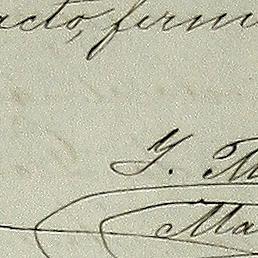 acto, firm
Y. M
Ma